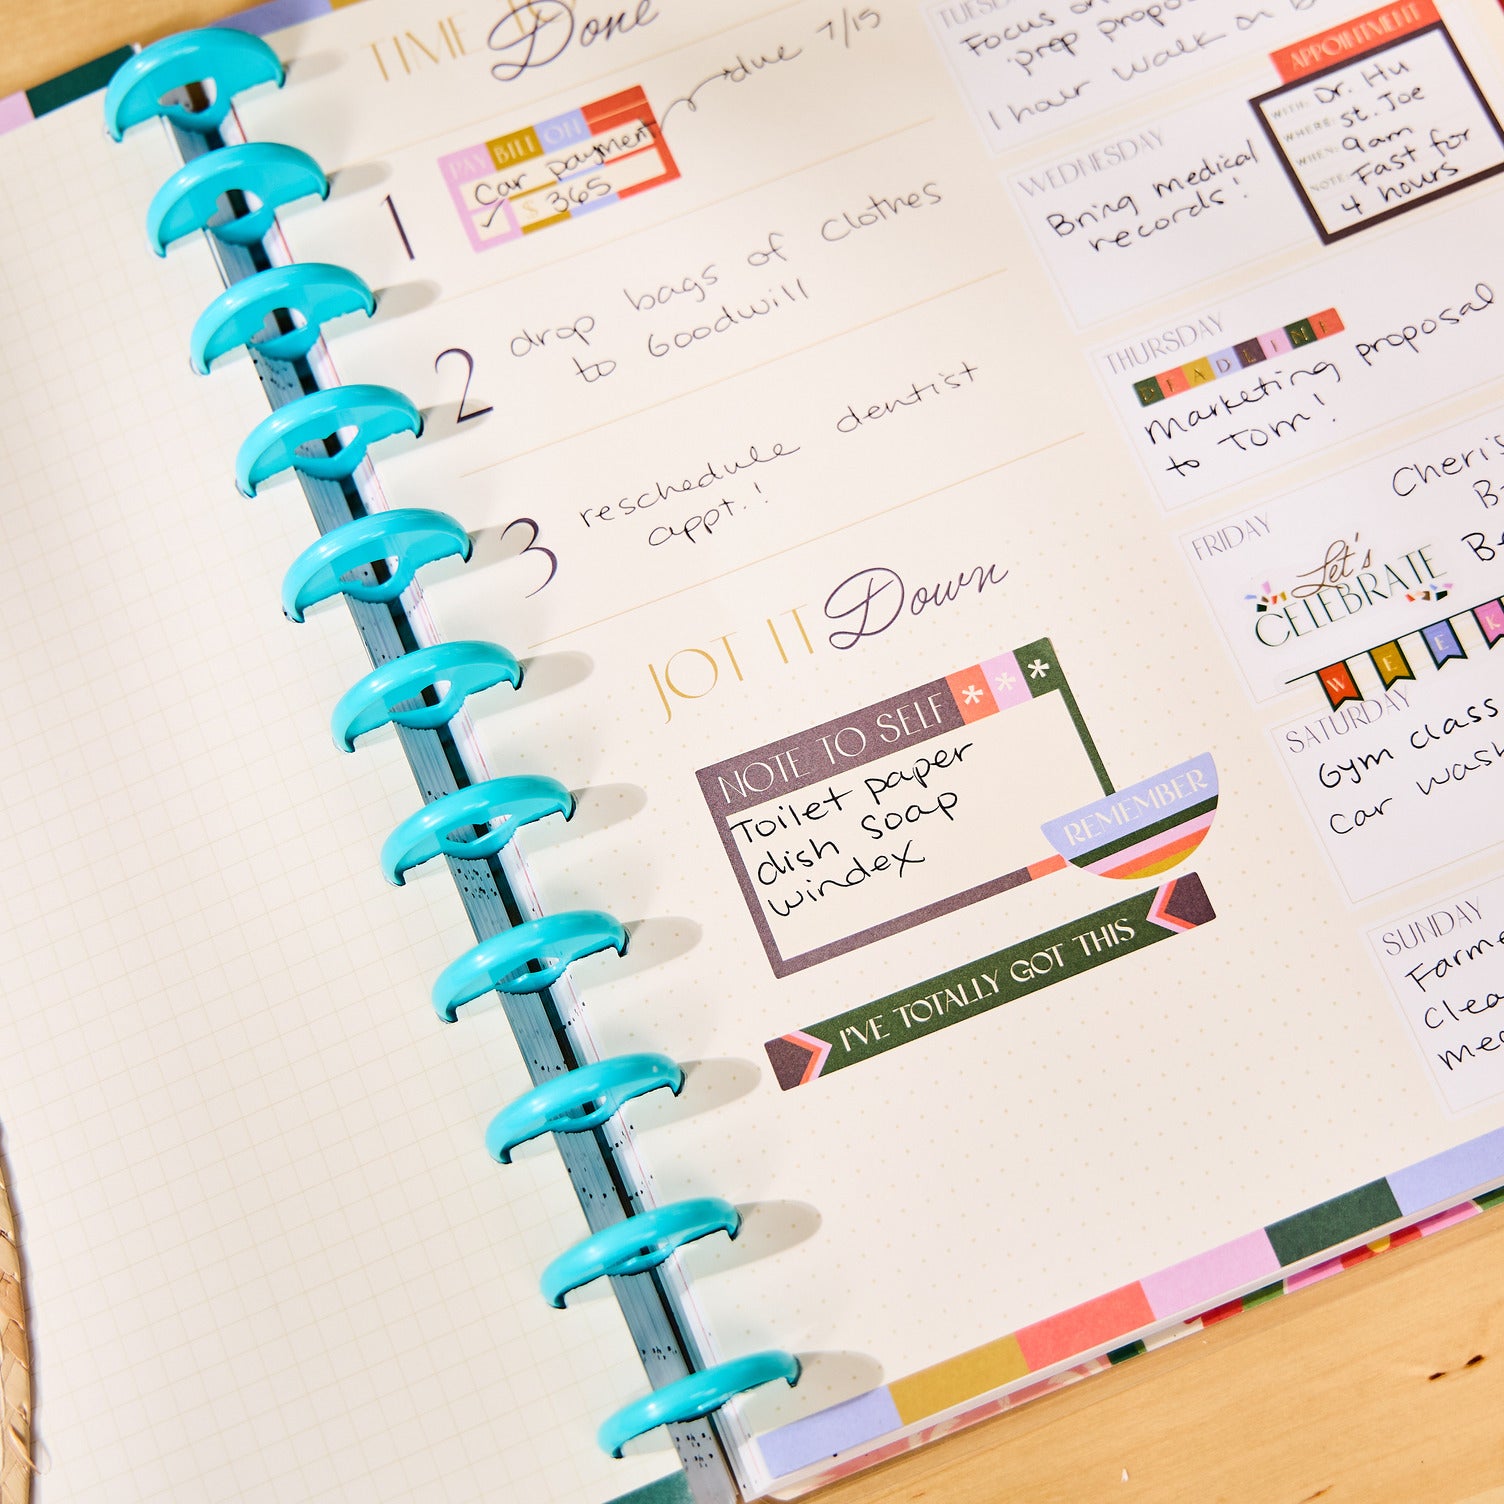 TIME Done
due 7/15
1
PAY BILL OFF
Car payment
✓ $ 365
2
drop bags of clothes
to Goodwill
3
reschedule dentist
appt.!
JOT IT Down
NOTE TO SELF ***
Toilet paper
dish soap
windex
REMEMBER
I'VE TOTALLY GOT THIS
Focus on
prep
1 hour walk on
WEDNESDAY
Bring medical
records!
APPOINTMENT
WITH: Dr. Hu
WHERE: St. Joe
WHEN: 9am
NOTE: Fast for
4 hours
THURSDAY
DEADLINE
Marketing proposal
to Tom!
FRIDAY
Let's
CELEBRATE
WEEK
SATURDAY
Gym class
Car wash
SUNDAY